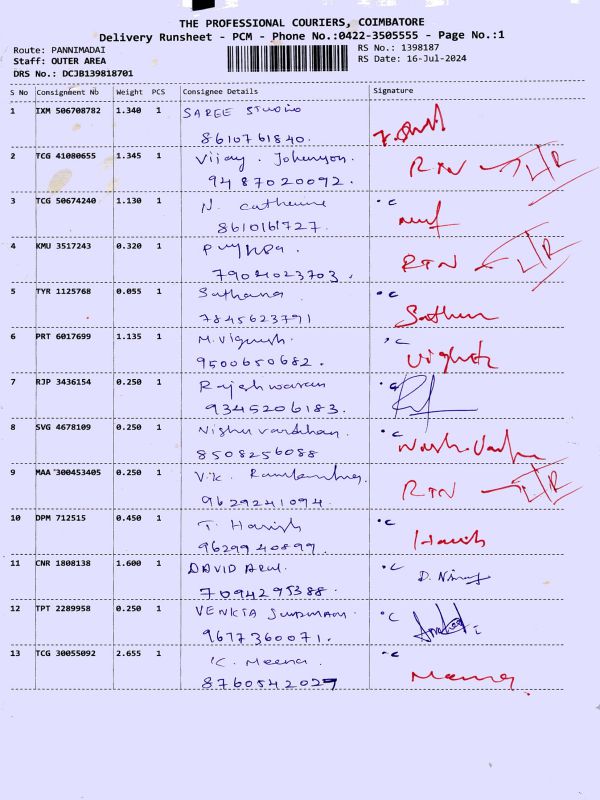 THE PROFESSIONAL COURIERS, COIMBATORE
Delivery Runsheet - PCM - Phone No.:0422-3505555 - Page No.:1
Route: PANNIMADAI
RS No.: 1398187
Staff: OUTER AREA
RS Date: 16-Jul-2024
DRS No.: DCJB139818701
S No Consignment Nb Weight PCS Consignee Details Signature
1 IXM 506708782 1.340 1 SAREE STUDIO
8610761840.
2 TCG 41080655 1.345 1 Vijay. RTN
9487020092.
3 TCG 50674240 1.130 1 N. Catherine °C
8610161727
4 KMU 3517243 0.320 1 RTN
7904023703.
5 TYR 1125768 0.055 1 Sathana °C
7845623791 Sathun
6 PRT 6017699 1.135 1 M. Vignesh °C
9500650682.
7 RJP 3436154 0.250 1 Rajeshwaran °C
9345206183.
8 SVG 4678109 0.250 1 Vishnu vardhan. °C
8508256088
9 MAA 300453405 0.250 1 V.K. RTN
9629241094.
10 DPM 712515 0.450 1 T. Harish °C
9629940899. Harish
11 CNR 1808138 1.600 1 DAVID Arul. °C
7094295388.
12 TPT 2289958 0.250 1 VENKTA °C
9617360071.
13 TCG 30055092 2.655 1 K. Meena. °C
8760542027 Meena